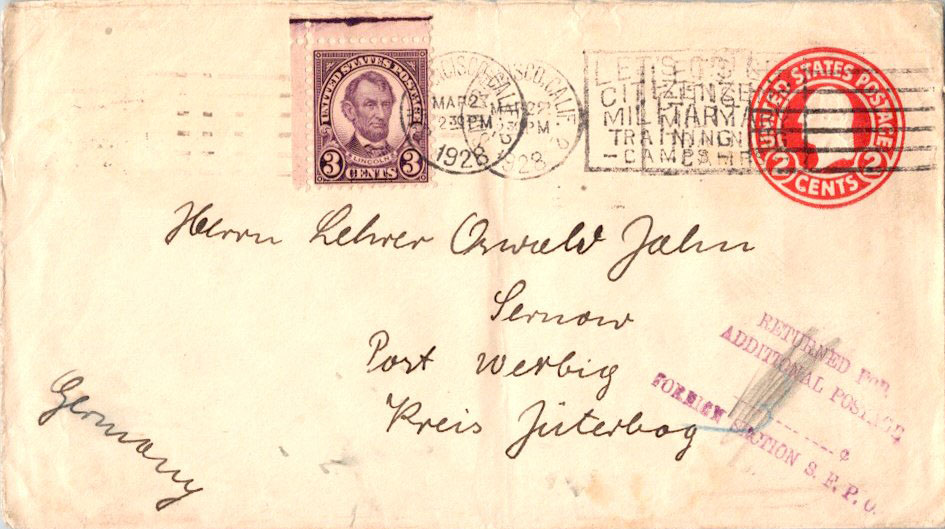 UNITED STATES POSTAGE
LINCOLN
3 CENTS 3
CISCO, CALIF.
MAR 23
2 PM
1928
ISCO, CALIF.
MAR 23
PM
1928
6
LET'S GO
CITIZENS
MILITARY
TRAINING
CAMPS
UNITED STATES POSTAGE
2 CENTS 2
Herrn Lehrer Oswald Jahn
Sernow
Post Werbig
Kreis Jüterbog
Germany
RETURNED FOR
ADDITIONAL POSTAGE
¢
FOREIGN SECTION S. F. P. O.